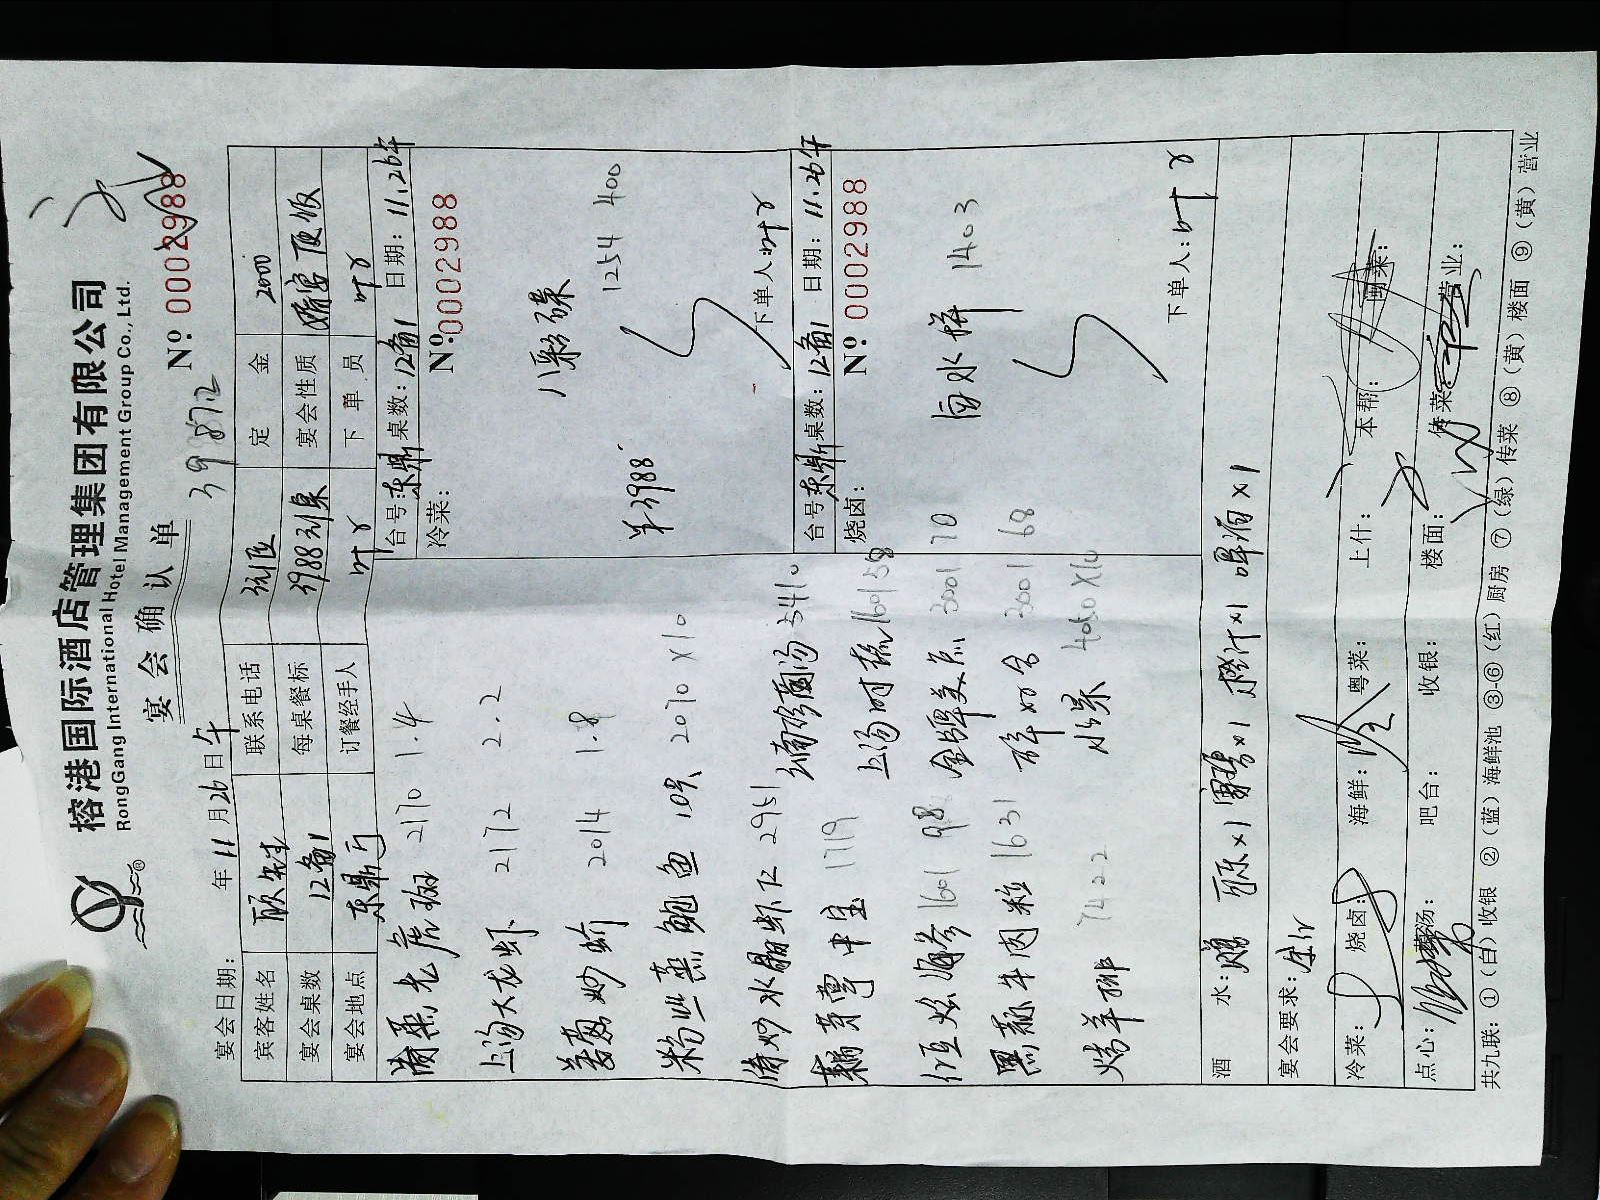 榕港国际酒店管理集团有限公司
RongGang International Hotel Management Group Co., Ltd.
宴会确认单
39872
No: 0002988
宴会日期: 年11月26日午
宾客姓名 联系电话 定金 2000
宴会桌数 12备1 每桌餐标 3988 宴会性质 便饭
宴会地点 东鼎厅 订餐经手人 叶 下单员 叶
清蒸老虎斑 2170 1.4
上汤大龙虾 2172 2.2
姜葱炒蟹 2014 1.8
粉丝蒸鲍鱼 10只 2070 X10
清炒水晶虾仁 2951
1719
1601 98
黑蒜牛肉粒 1631
烤羊排 7422
3410
上汤时蔬 1601 58
金牌美点 3001 70
3001 68
水果 4050 X10
台号:东鼎 桌数:12备1 日期:11.26午
冷菜:
No: 0002988
八彩碟
1254 400
单3988
下单人:叶
台号:东鼎 桌数:12备1 日期:11.26午
烧卤:
No: 0002988
1403
下单人:叶
酒水: 可乐X1 雪碧X1 橙汁X1 啤酒X1
宴会要求:
冷菜: 烧卤: 海鲜: 粤菜: 上什: 本帮: 闽菜:
点心: 吧台: 收银: 楼面: 传菜: 营业:
共九联:①(白)收银 ②(蓝)海鲜池 ③-⑥(红)厨房 ⑦(绿)传菜 ⑧(黄)楼面 ⑨(黄)营业